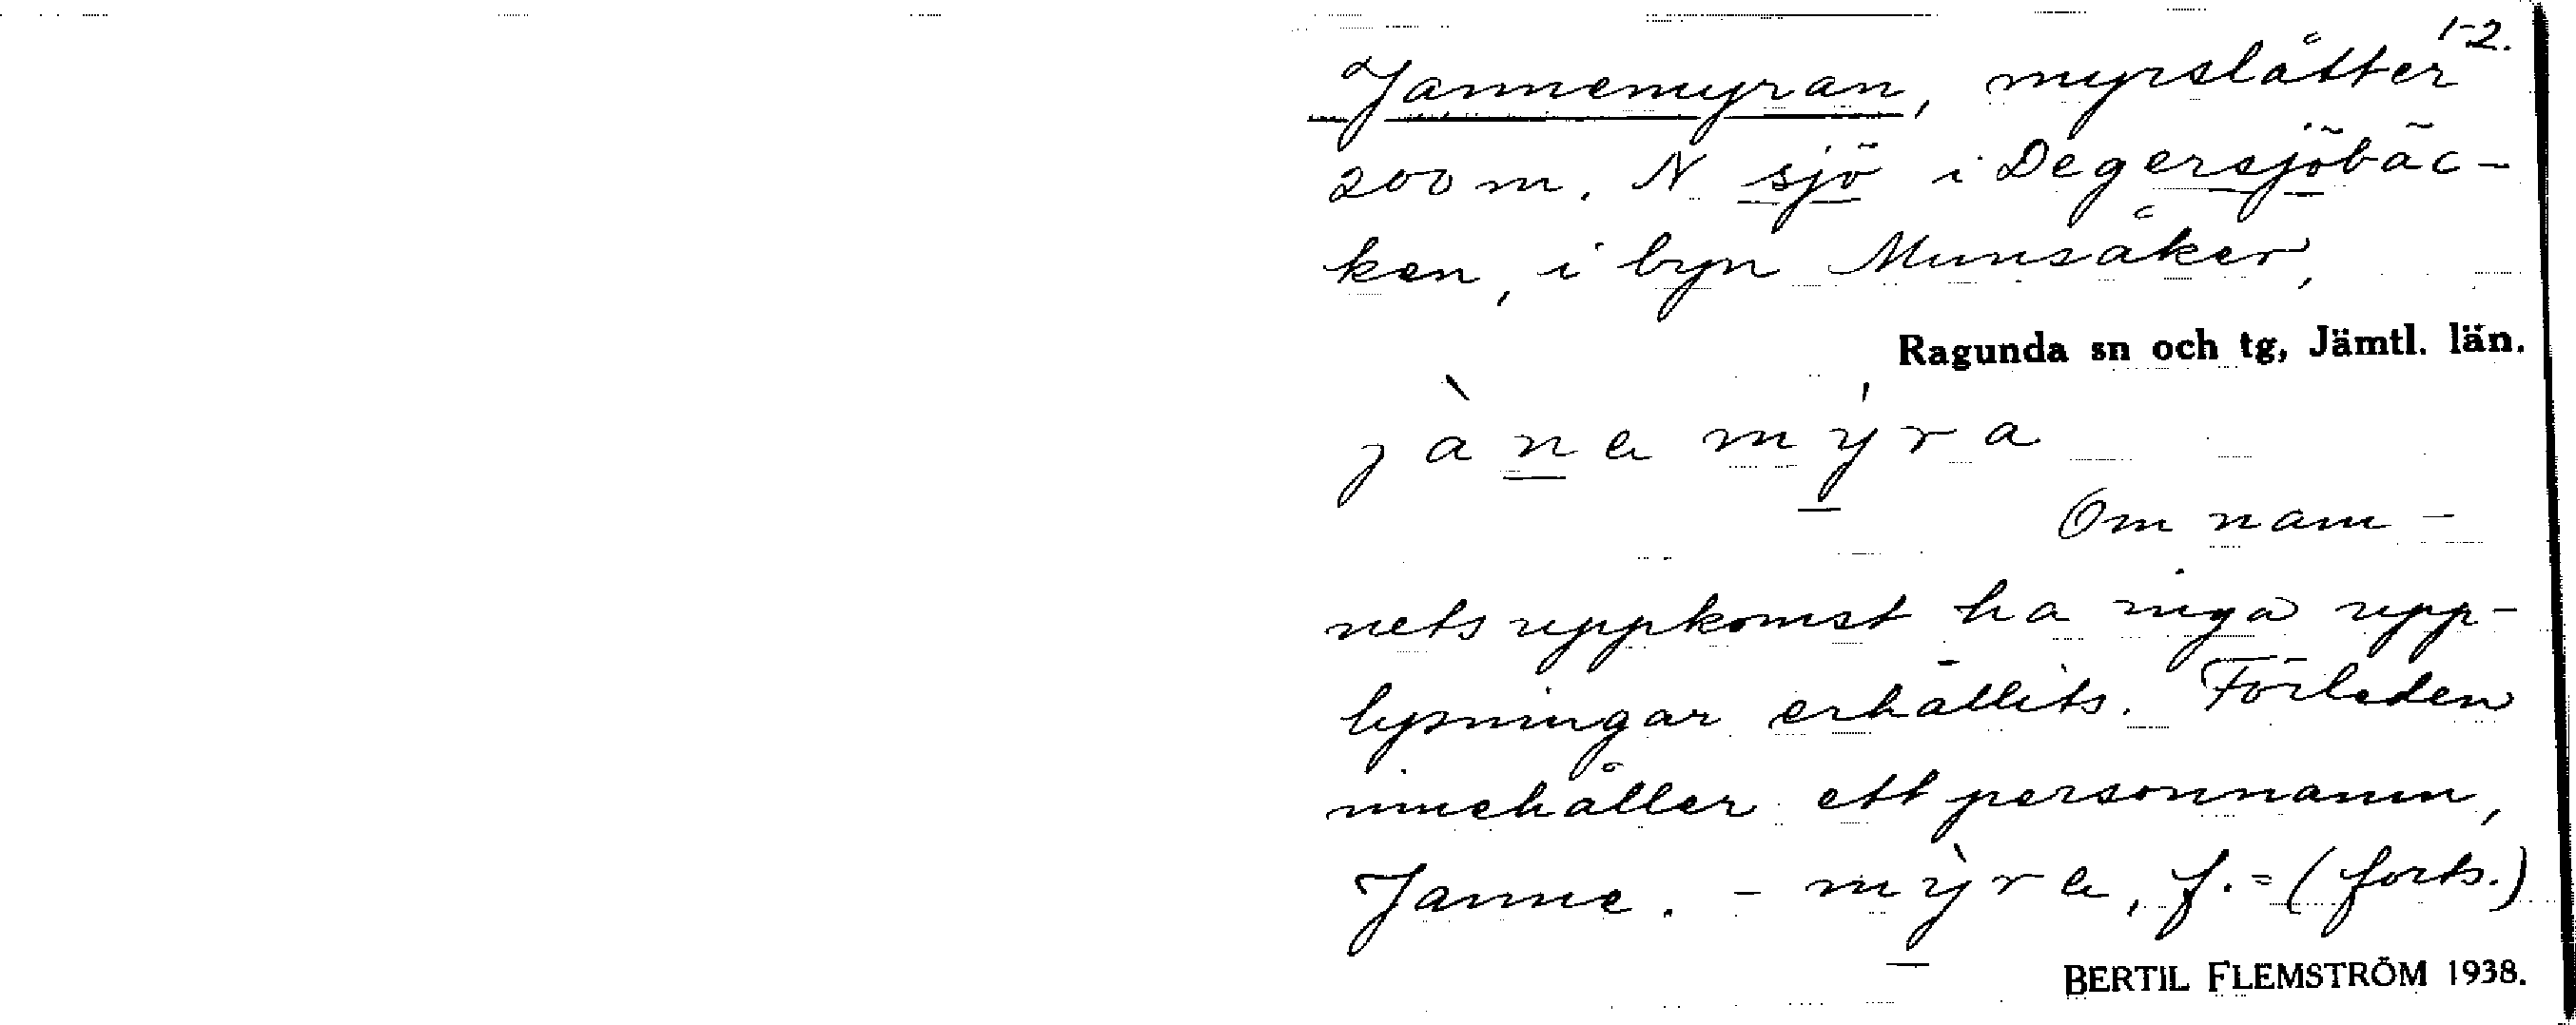 1-2.
Jannemyran, myrslåtter
200 m. N sjö i Degersjöbäc-
ken, i byn Munsåker,
Ragunda sn och tg, Jämtl. län.
jànamýra
Om nam-
nets uppkomst ha inga upp-
lysningar erhållits. Förleden
innehåller ett personnamn,
Janne. - mỳra, f. = (forts.)
BERTIL FLEMSTRÖM 1938.